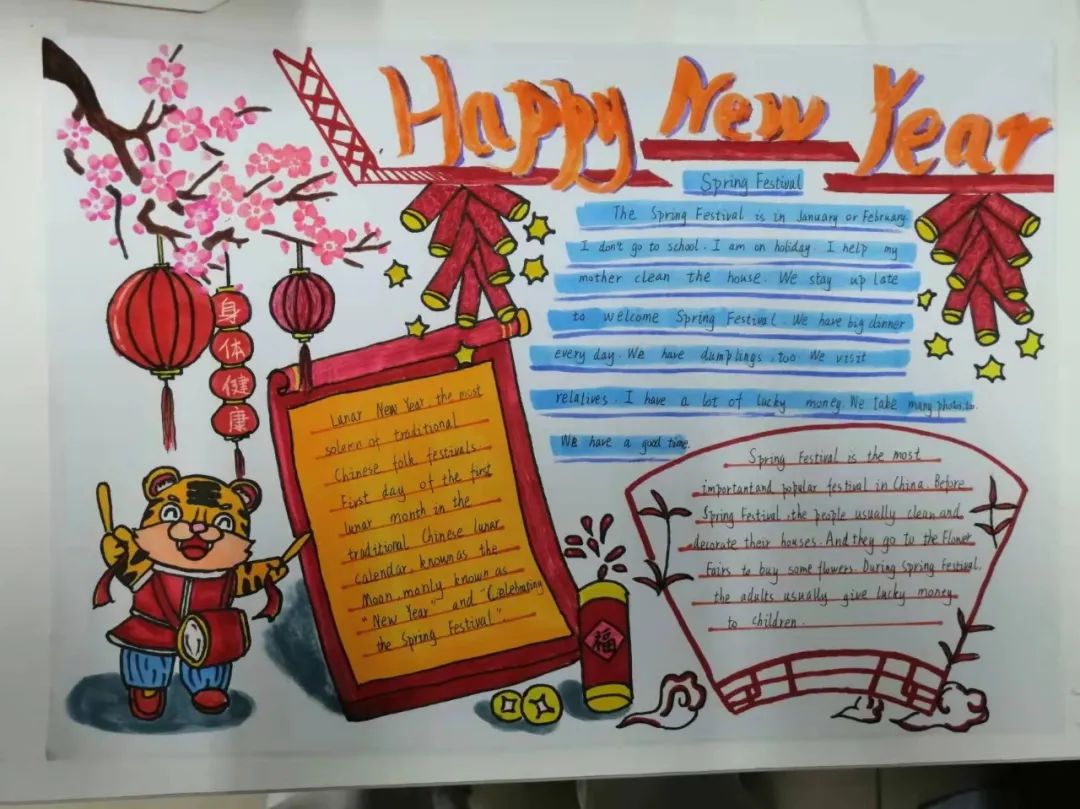 Happy New Year
Spring Festival
The Spring Festival is in January or February.
I don't go to school. I am on holiday. I help my
mother clean the house. We stay up late
to welcome Spring Festival. We have big dinner
every day. We have dumplings, too. We visit
relatives. I have a lot of lucky money. We take many photos, too.
We have a good time.
身
体
健
康
Lunar New Year, the most
solemn of traditional
Chinese folk festivals.
First day of the first
lunar month in the
traditional Chinese lunar
calendar, known as the
Moon, manly known as
"New Year" and "Celebrating
the Spring Festival".
福
Spring Festival is the most
important and popular festival in China. Before
Spring Festival, the people usually clean and
decorate their houses. And they go to the Flower
Fairs to buy some flowers. During Spring Festival,
the adults usually give lucky money
to children.